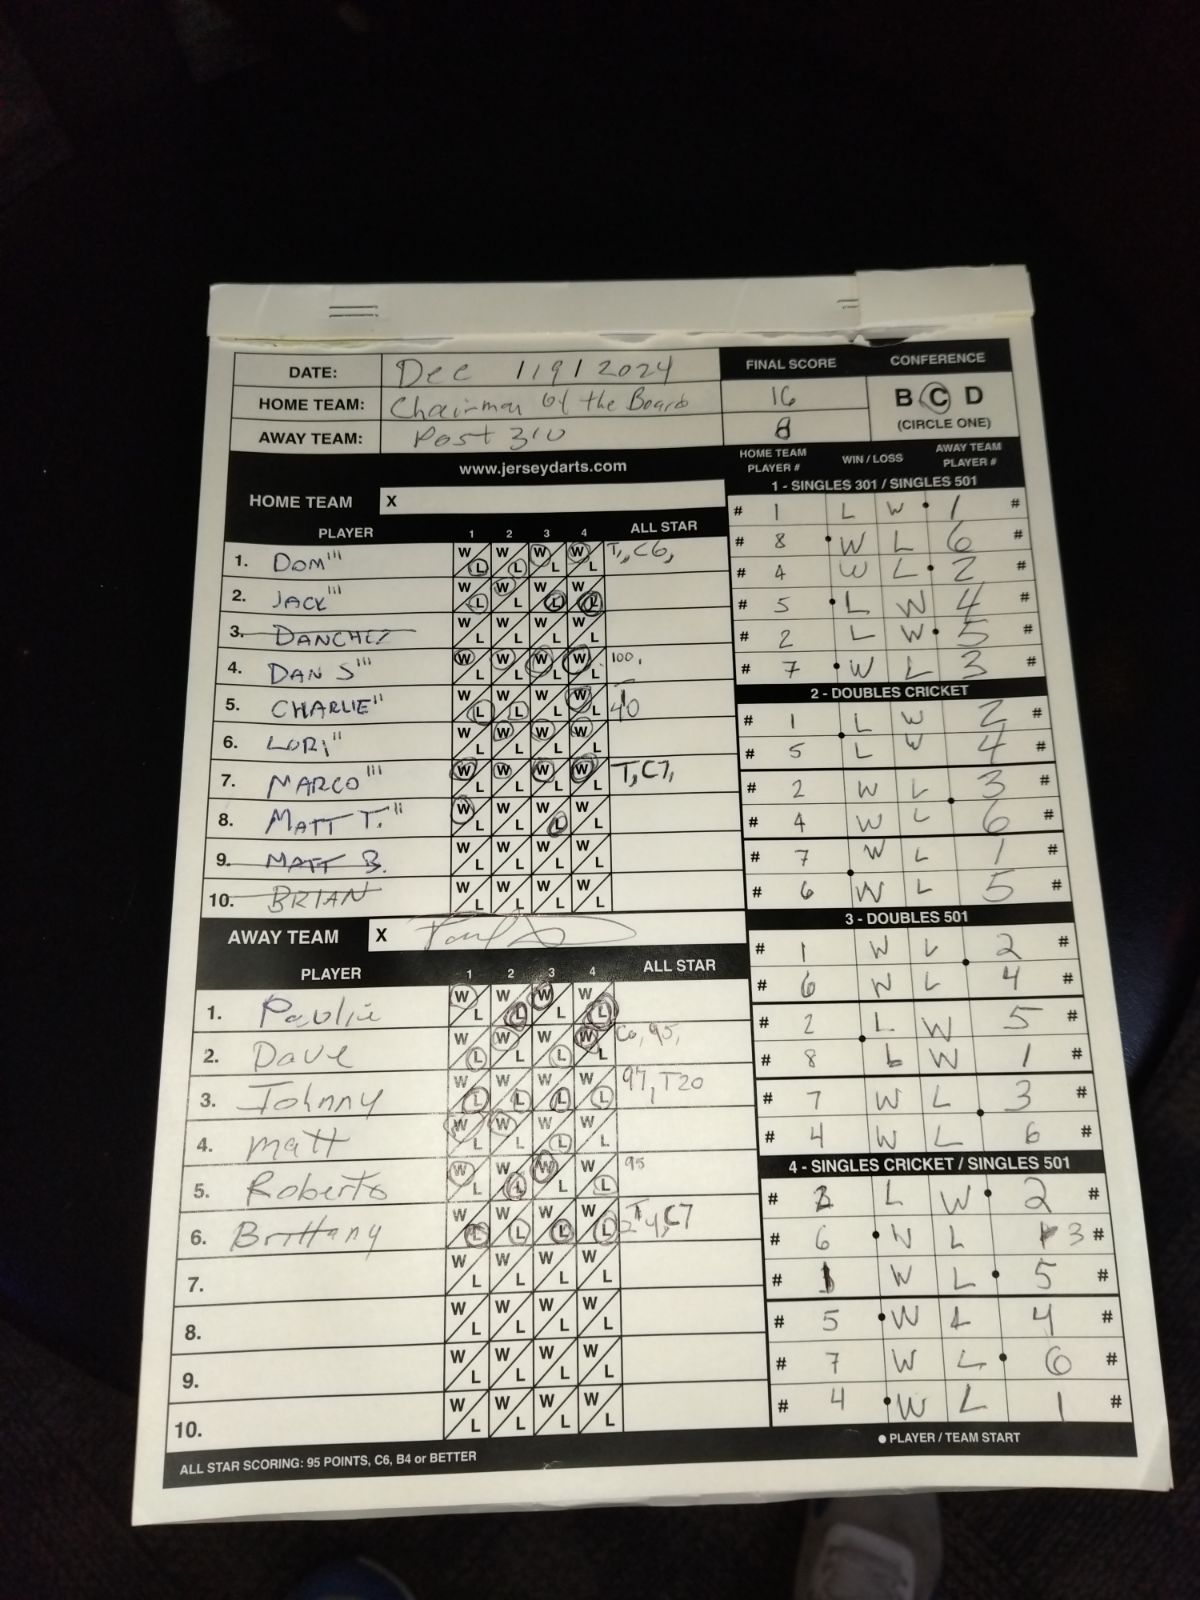 DATE: Dec 11912024 FINAL SCORE CONFERENCE
HOME TEAM: Chairman of the Board 16 B C D
AWAY TEAM: Post 310 8 (CIRCLE ONE)
www.jerseydarts.com
HOME TEAM X
PLAYER 1 2 3 4 ALL STAR
1. DOM''' W L W L W L W L T, C6,
2. JACK''' W L W L W L W L
3. DANCHEZ W L W L W L W L
4. DAN S''' W L W L W L W L 100,
5. CHARLIE'' W L W L W L W L
6. LORI'' W L W L W L W L
7. MARCO''' W L W L W L W L T, C7,
8. MATT T.'' W L W L W L W L
9. MATT B. W L W L W L W L
10. BRIAN W L W L W L W L
AWAY TEAM X
PLAYER 1 2 3 4 ALL STAR
1. Paulie W L W L W L W L
2. Dave W L W L W L W L C6, 95,
3. Johnny W L W L W L W L 97, T20
4. Matt W L W L W L W L
5. Roberto W L W L W L W L 95
6. Brittany W L W L W L W L C7
7. W L W L W L W L
8. W L W L W L W L
9. W L W L W L W L
10. W L W L W L W L
ALL STAR SCORING: 95 POINTS, C6, B4 or BETTER
HOME TEAM PLAYER # WIN / LOSS AWAY TEAM PLAYER #
1 - SINGLES 301 / SINGLES 501
# 1 L W 1 #
# 8 W L 6 #
# 4 W L 2 #
# 5 L W 4 #
# 2 L W 5 #
# 7 W L 3 #
2 - DOUBLES CRICKET
# 1 L W 2 #
# 5 L W 4 #
# 2 W L 3 #
# 4 W L 6 #
# 7 W L 1 #
# 6 W L 5 #
3 - DOUBLES 501
# 1 W L 2 #
# 6 W L 4 #
# 2 L W 5 #
# 8 L W 1 #
# 7 W L 3 #
# 4 W L 6 #
4 - SINGLES CRICKET / SINGLES 501
# 2 L W 2 #
# 6 W L 3 #
# 1 W L 5 #
# 5 W L 4 #
# 7 W L 6 #
# 4 W L 1 #
PLAYER / TEAM START